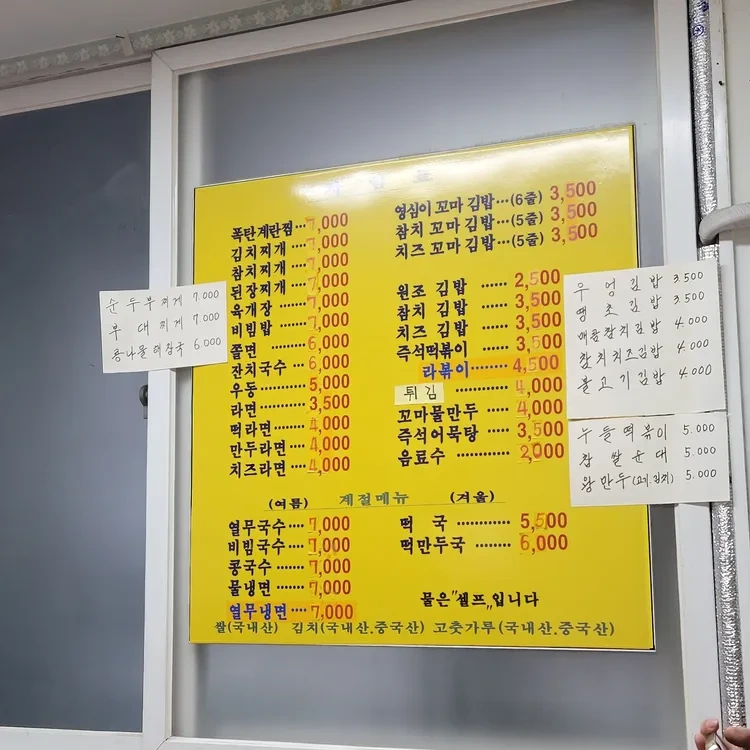 순두부찌개 7.000
부대찌개 7.000
콩나물해장국 6.000
폭탄계란찜 7,000
김치찌개 7,000
참치찌개 7,000
된장찌개 7,000
육개장 7,000
비빔밥 7,000
쫄면 6,000
잔치국수 6,000
우동 5,000
라면 3,500
떡라면 4,000
만두라면 4,000
치즈라면 4,000
영심이 꼬마 김밥 (6줄) 3,500
참치 꼬마 김밥 (5줄) 3,500
치즈 꼬마 김밥 (5줄) 3,500
원조 김밥 2,500
참치 김밥 3,500
치즈 김밥 3,500
즉석떡볶이 3,500
라볶이 4,500
튀김 4,000
꼬마물만두 4,000
즉석어묵탕 3,500
음료수 2,000
우엉김밥 3.500
땡초김밥 3.500
매콤참치김밥 4.000
참치치즈김밥 4.000
불고기김밥 4.000
누들떡볶이 5.000
찹쌀순대 5.000
왕만두(고기.김치) 5.000
(여름) 계절메뉴 (겨울)
열무국수 7,000
비빔국수 7,000
콩국수 7,000
물냉면 7,000
열무냉면 7,000
떡국 5,500
떡만두국 6,000
물은 "셀프" 입니다
쌀(국내산) 김치(국내산.중국산) 고춧가루(국내산.중국산)